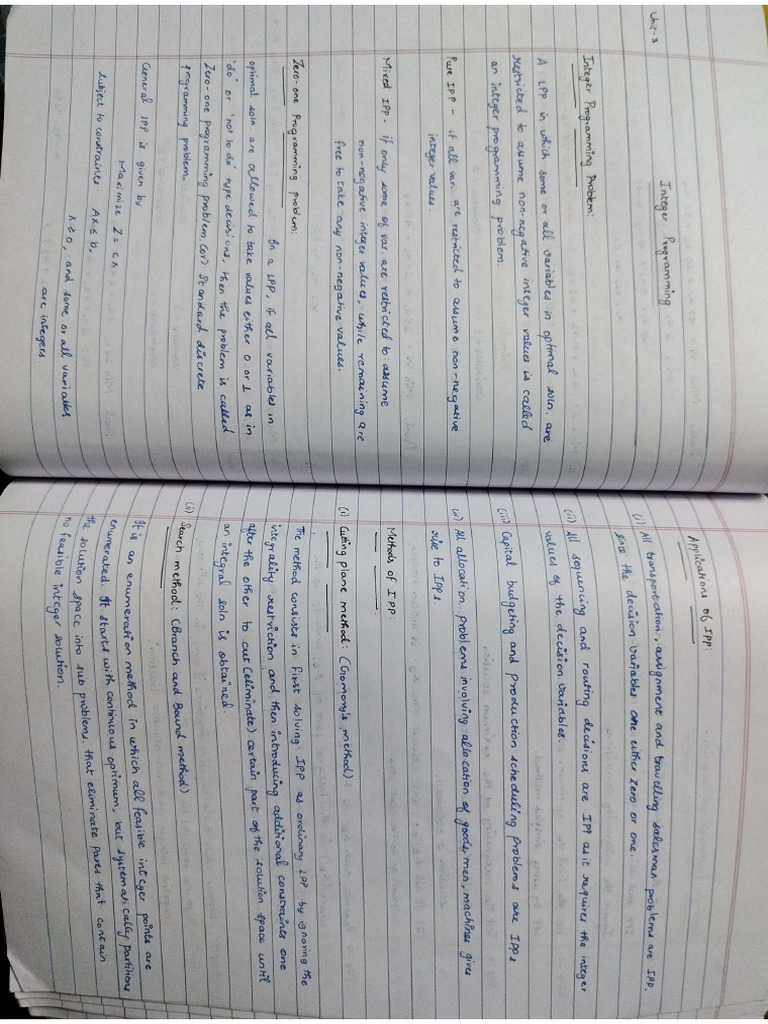 Unit-3
Integer Programming
Integer Programming Problem:
A LPP in which some or all variables in optimal soln. are
restricted to assume non-negative integer values is called
an integer programming problem.
Pure IPP - if all var. are restricted to assume non-negative
integer values.
Mixed IPP - if only some of var. are restricted to assume
non-negative integer values, while remaining are
free to take any non-negative values.
Zero-one Programming problem:
In a LPP, if all variables in
optimal soln are allowed to take values either 0 or 1 as in
'do' or 'not to do' type decisions, then the problem is called
Zero-one programming problem (or) Standard discrete
programming problem.
General IPP is given by
Maximize Z = cx
subject to constraints Ax ≤ b,
x ≥ 0, and some or all variables
are integers
Applications of IPP:
(i) All transportation, assignment and travelling salesman problems are IPP,
since the decision variables are either Zero or one.
(ii) All sequencing and routing decisions are IPP as it requires the integer
values of the decision variables.
(iii) Capital budgeting and production scheduling problems are IPPs
(iv) All allocation problems involving allocation of goods, men, machines gives
rise to IPPs
Methods of IPP:
(i) Cutting plane method: (Gomory's method)
The method consists in first solving IPP as ordinary LPP by ignoring the
integrality restriction and then introducing additional constraints one
after the other to cut (eliminate) certain part of the solution space until
an integral soln is obtained.
(ii) Search method: (Branch and Bound method)
It is an enumeration method in which all feasible integer points are
enumerated. It starts with continuous optimum, but systematically partitions
the solution space into sub problems that eliminate parts that contain
no feasible integer solution.